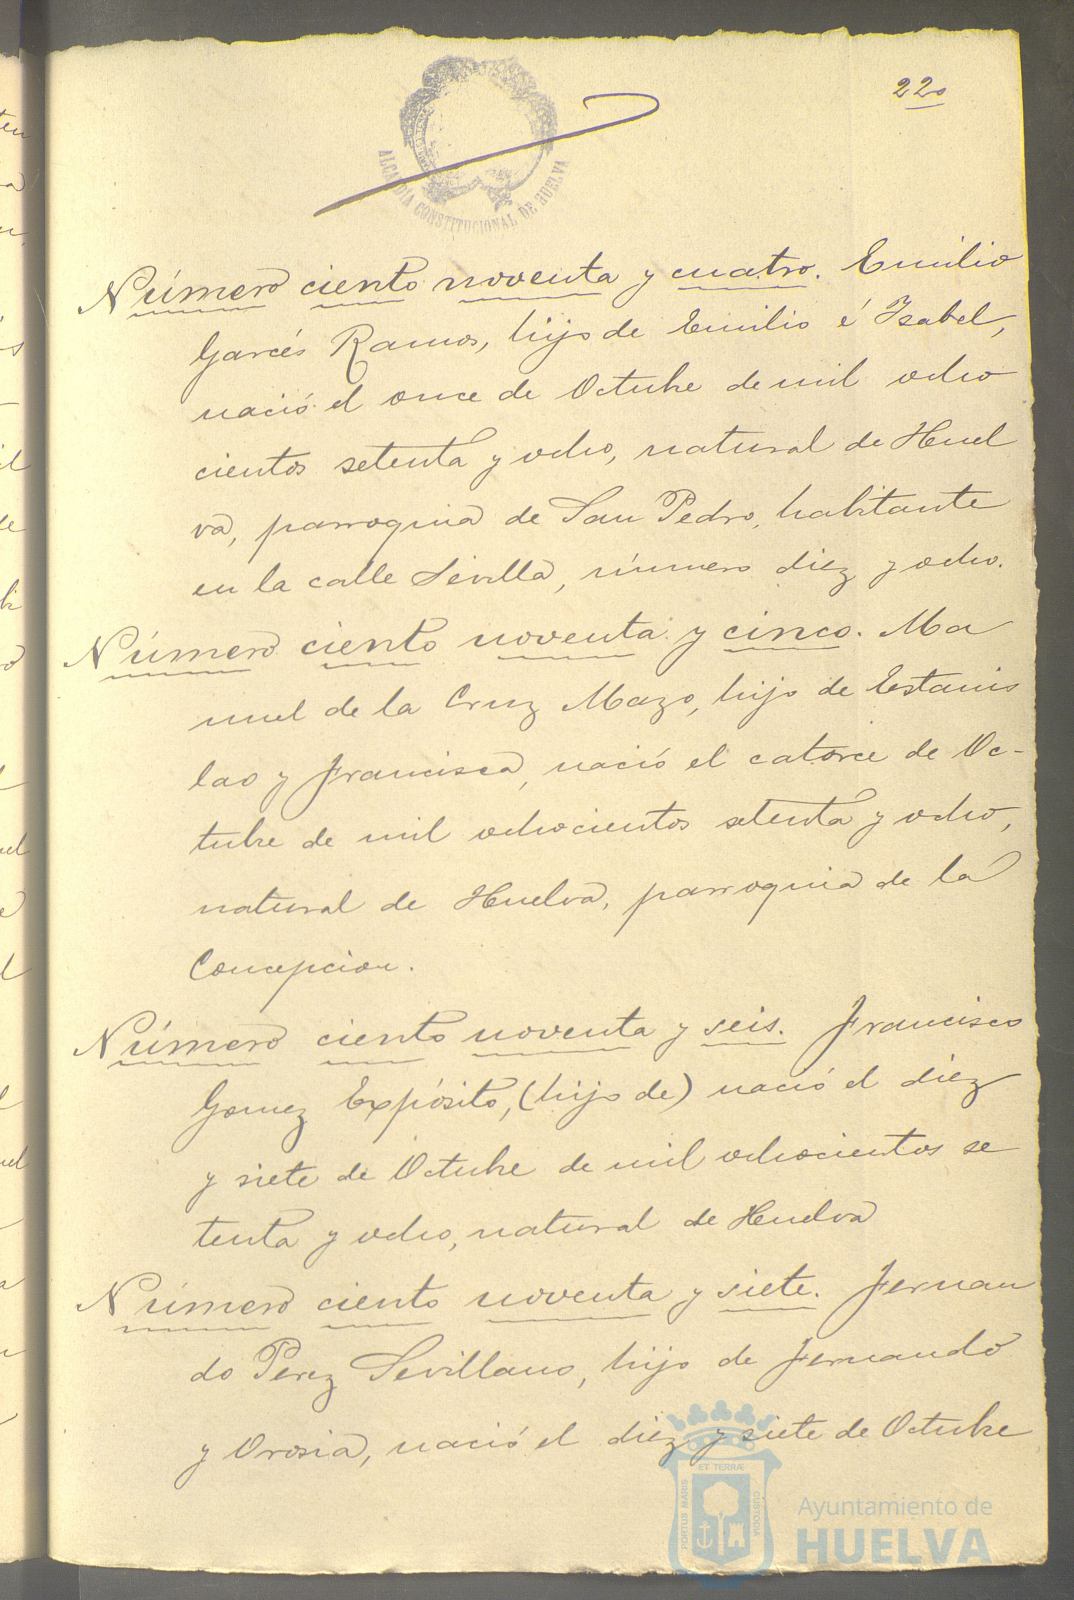 220
ALCALDÍA CONSTITUCIONAL DE HUELVA
Número ciento noventa y cuatro. Emilio
Garcés Ramos, hijo de Emilio é Isabel,
nació el once de Octubre de mil ocho
cientos setenta y ocho, natural de Huel
va, parroquia de San Pedro, habitante
en la calle Sevilla, número diez y ocho.
Número ciento noventa y cinco. Ma
nuel de la Cruz Mazo, hijo de Estanis
lao y Francisca, nació el catorce de Oc-
tubre de mil ochocientos setenta y ocho,
natural de Huelva, parroquia de la
Concepcion.
Número ciento noventa y seis. Francisco
Gomez Expósito, (hijo de) nació el diez
y siete de Octubre de mil ochocientos se
tenta y ocho, natural de Huelva
Número ciento noventa y siete. Fernan
do Perez Sevillano, hijo de Fernando
y Orosia, nació el diez y siete de Octubre
PORTUS MARIS ET TERRÆ CUSTODIA
Ayuntamiento de
HUELVA